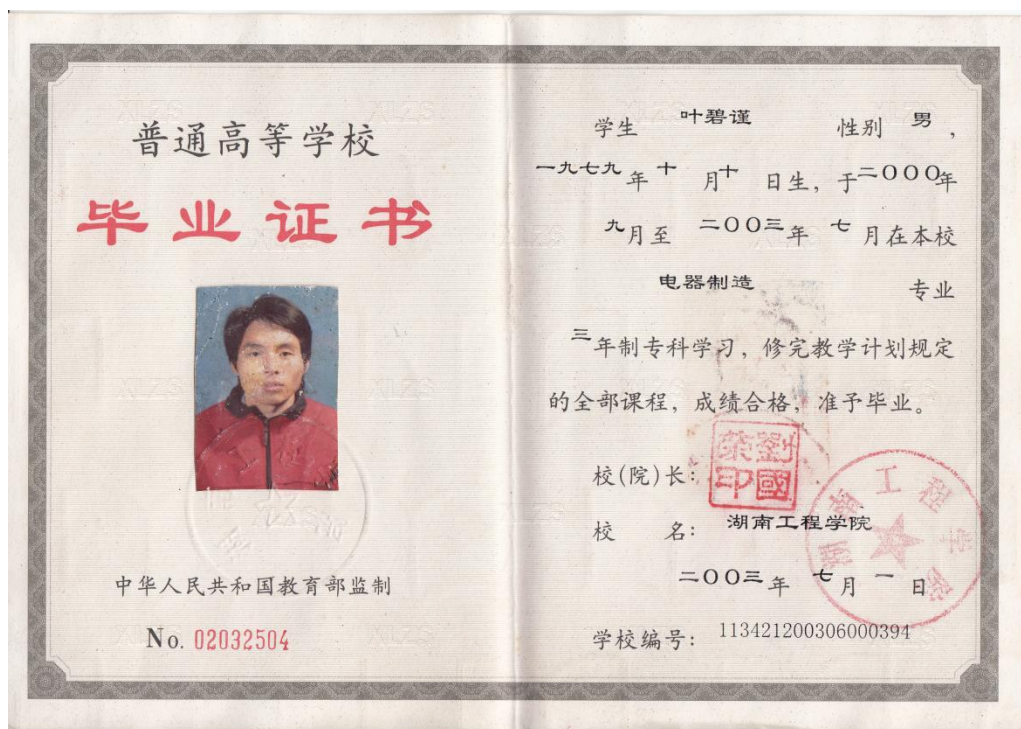 普通高等学校
毕业证书
中华人民共和国教育部监制
No. 02032504
学生 叶碧谨 性别 男,
一九七九年十月十日生,于二〇〇〇年
九月至 二〇〇三年 七月在本校
电器制造 专业
三年制专科学习,修完教学计划规定
的全部课程,成绩合格,准予毕业。
校(院)长:
劉國榮印
校 名: 湖南工程学院
湖南工程学院
二〇〇三年 七月一日
学校编号: 113421200306000394